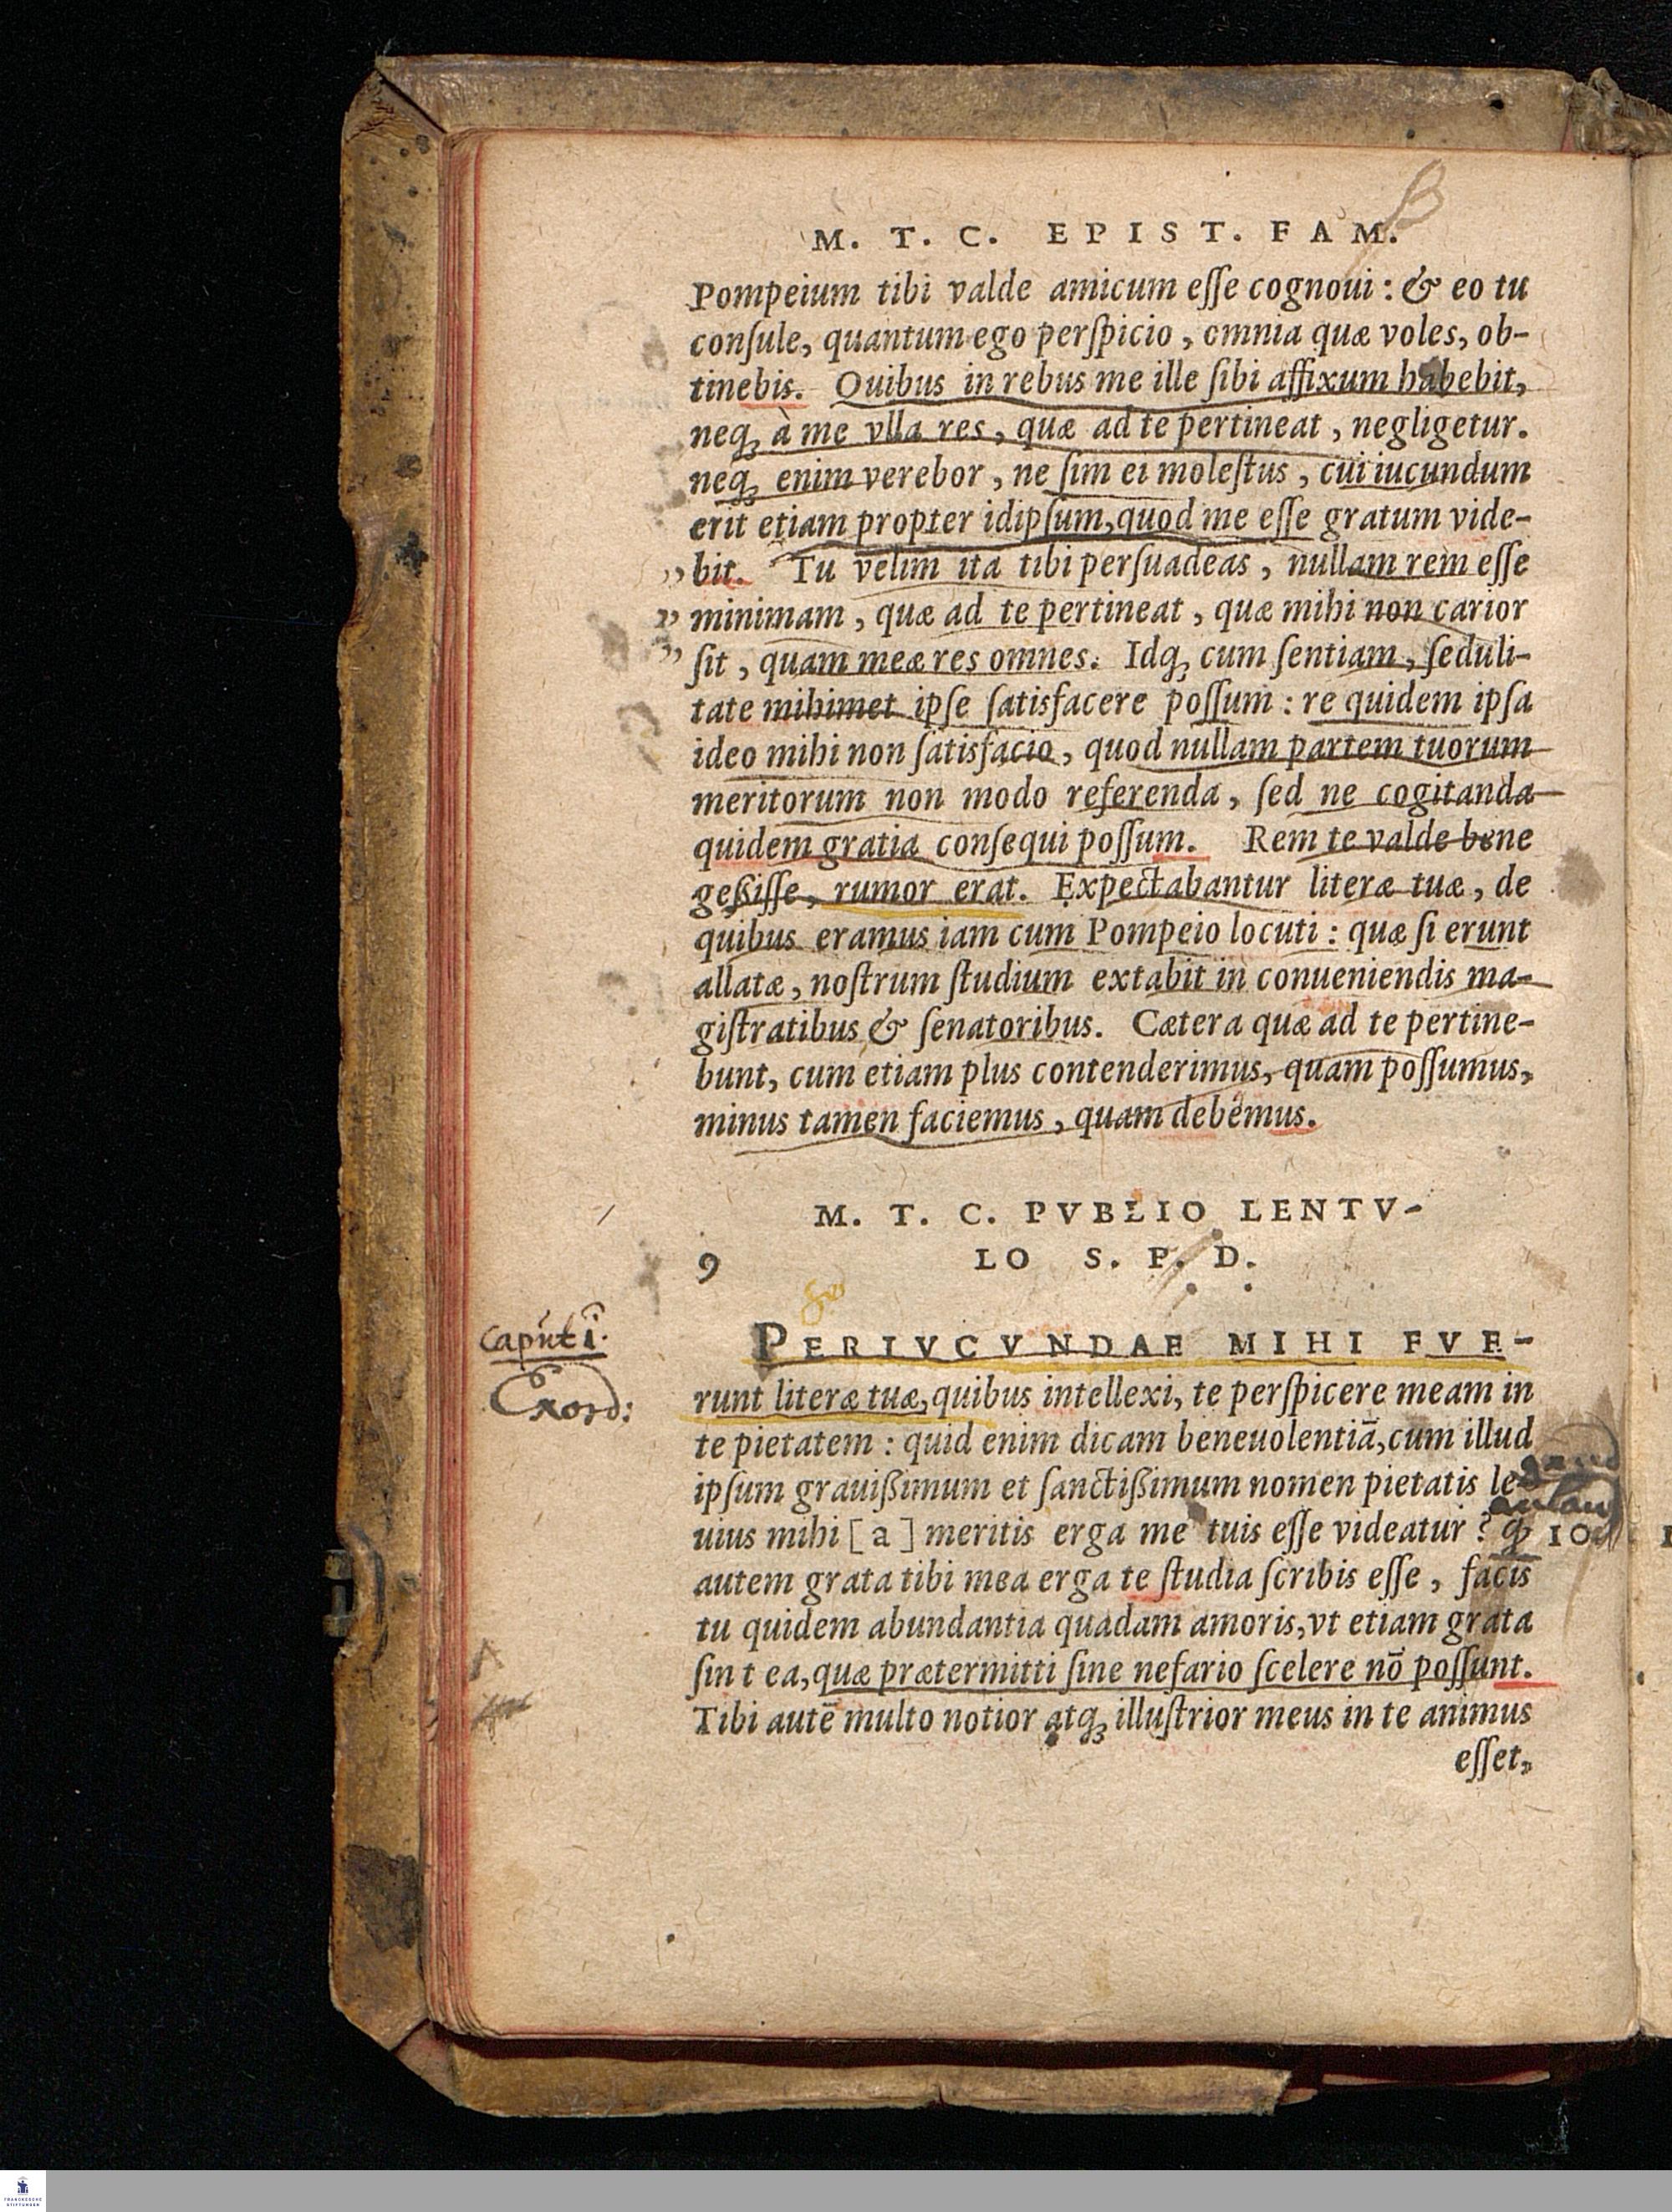 M. T. C. EPIST. FAM.
Pompeium tibi valde amicum eſſe cognoui: & eo tu
conſule, quantum ego perſpicio, omnia quæ voles, ob-
tinebis. Quibus in rebus me ille ſibi affixum habebit,
neq́; à me vlla res, quæ ad te pertineat, negligetur.
neq́; enim verebor, ne ſim ei moleſtus, cui iucundum
erit etiam propter idipſum, quod me eſſe gratum vide-
„ bit. Tu velim ita tibi perſuadeas, nullam rem eſſe
„ minimam, quæ ad te pertineat, quæ mihi non carior
„ ſit, quam meæ res omnes. Idq́; cum ſentiam, ſeduli-
tate mihimet ipſe ſatisfacere poſſum: re quidem ipſa
ideo mihi non ſatisfacio, quod nullam partem tuorum
meritorum non modo referenda, ſed ne cogitanda
quidem gratia conſequi poſſum. Rem te valde bene
geßiſſe, rumor erat. Expectabantur literæ tuæ, de
quibus eramus iam cum Pompeio locuti: quæ ſi erunt
allatæ, noſtrum ſtudium extabit in conueniendis ma-
giſtratibus & ſenatoribus. Cætera quæ ad te pertine-
bunt, cum etiam plus contenderimus, quam poſſumus,
minus tamen faciemus, quam debemus.
M. T. C. PVBLIO LENTV-
9 LO S. P. D.
Caput i.
PERIVCVNDAE MIHI FVE-
Exord:
runt literæ tuæ, quibus intellexi, te perſpicere meam in
te pietatem: quid enim dicam beneuolentiã, cum illud
ipſum grauißimum et ſanctißimum nomen pietatis le-
uius mihi [a] meritis erga me tuis eſſe videatur? ꝙ 10
autem grata tibi mea erga te ſtudia ſcribis eſſe, facis
tu quidem abundantia quadam amoris, vt etiam grata
ſin t ea, quæ prætermitti ſine nefario ſcelere nõ poſſunt.
Tibi autẽ multo notior atq́; illuſtrior meus in te animus
eſſet,
FRANCKESCHE
STIFTUNGEN